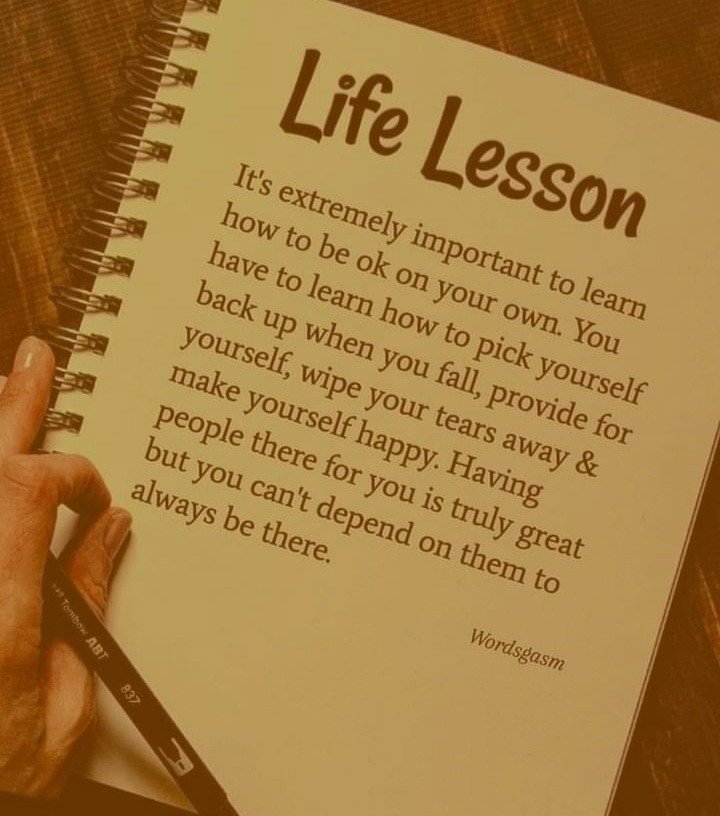 Life Lesson
It's extremely important to learn
how to be ok on your own. You
have to learn how to pick yourself
back up when you fall, provide for
yourself, wipe your tears away &
make yourself happy. Having
people there for you is truly great
but you can't depend on them to
always be there.
Wordsgasm
Tombow ABT
837